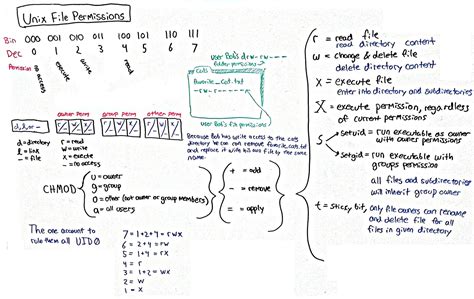 Unix File Permissions
Bin 000 001 010 011 100 101 110 111
Dec 0 1 2 3 4 5 6 7
Permission no access execute write read
User Bob's drw-rw----
folder permissions
Cats
favorite_cat.txt
-rw-r-----
User Bob's file permissions
Because Bob has write access to the cats
directory he can remove favorite_cats.txt
and replace it with his own file by the same
name.
d,l,or- owner perm group perm other perm
d = directory
l = link
- = file
r = read
w = write
x = execute
- = no access
CHMOD
u = owner
g = group
o = other (not owner or group members)
a = all users
+ = add
- = remove
= = apply
r = read file
read directory content
w = change & delete file
delete directory content
x = execute file
enter into directory and subdirectories
X = execute permission, regardless
of current permissions
s
setuid = run executable as owner
with owner permissions
setgid = run executable with
groups permission
all files and subdirectories
will inherit group owner
t = sticky bit, only file owners can rename
and delete file for all
files in given directory
The one account to
rule them all UID0
7 = 1+2+4 = rwx
6 = 2+4 = rw
5 = 1+4 = rx
4 = r
3 = 1+2 = wx
2 = w
1 = x